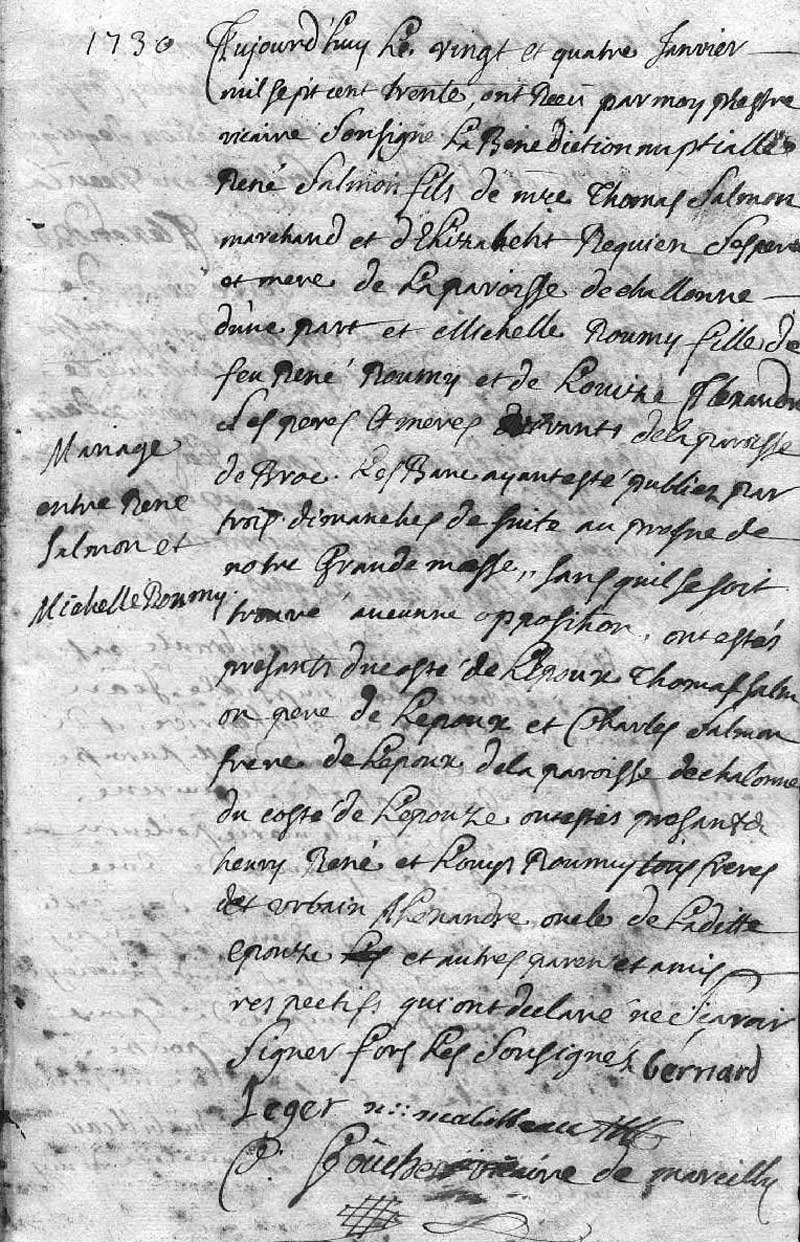 1730 Aujourd'huy le vingt et quatre Janvier
mil sept cent trente, ont Receu par moy prestre
vicaire Sousigne La Benediction nuptialle
René Salmon fils de mre Thomas Salmon
marchand et d'Elizabeht Requien Ses pere
et mere de la paroisse de challonne
d'une part et Michelle Roumy fille de
feu René Roumy et de Louize Alexandre
Ses peres et meres de la paroisse
de Broc. Les Banc ayant esté publiez par
trois dimanches de suite au prosne de
notre Grande messe, sans qu'il se soit
trouvé aucunne opposition, ont estés
presants du costé de L'epoux Thomas Salm
on pere de L'epoux et Charles Salmon
frere de L'epoux de la paroisse de chalonne
du costé de L'epouze ont estés presants
henry René et Louys Roumy tous freres
et vrbain Alexandre oncle de Laditte
epouze et autres paren et amis
respectifs qui ont declaré ne Scavoir
Signer fors Les Sousignez bernard
Leger mabilleau
P. vicaire de marcilly
Mariage
entre René
Salmon et
Michelle Roumy.